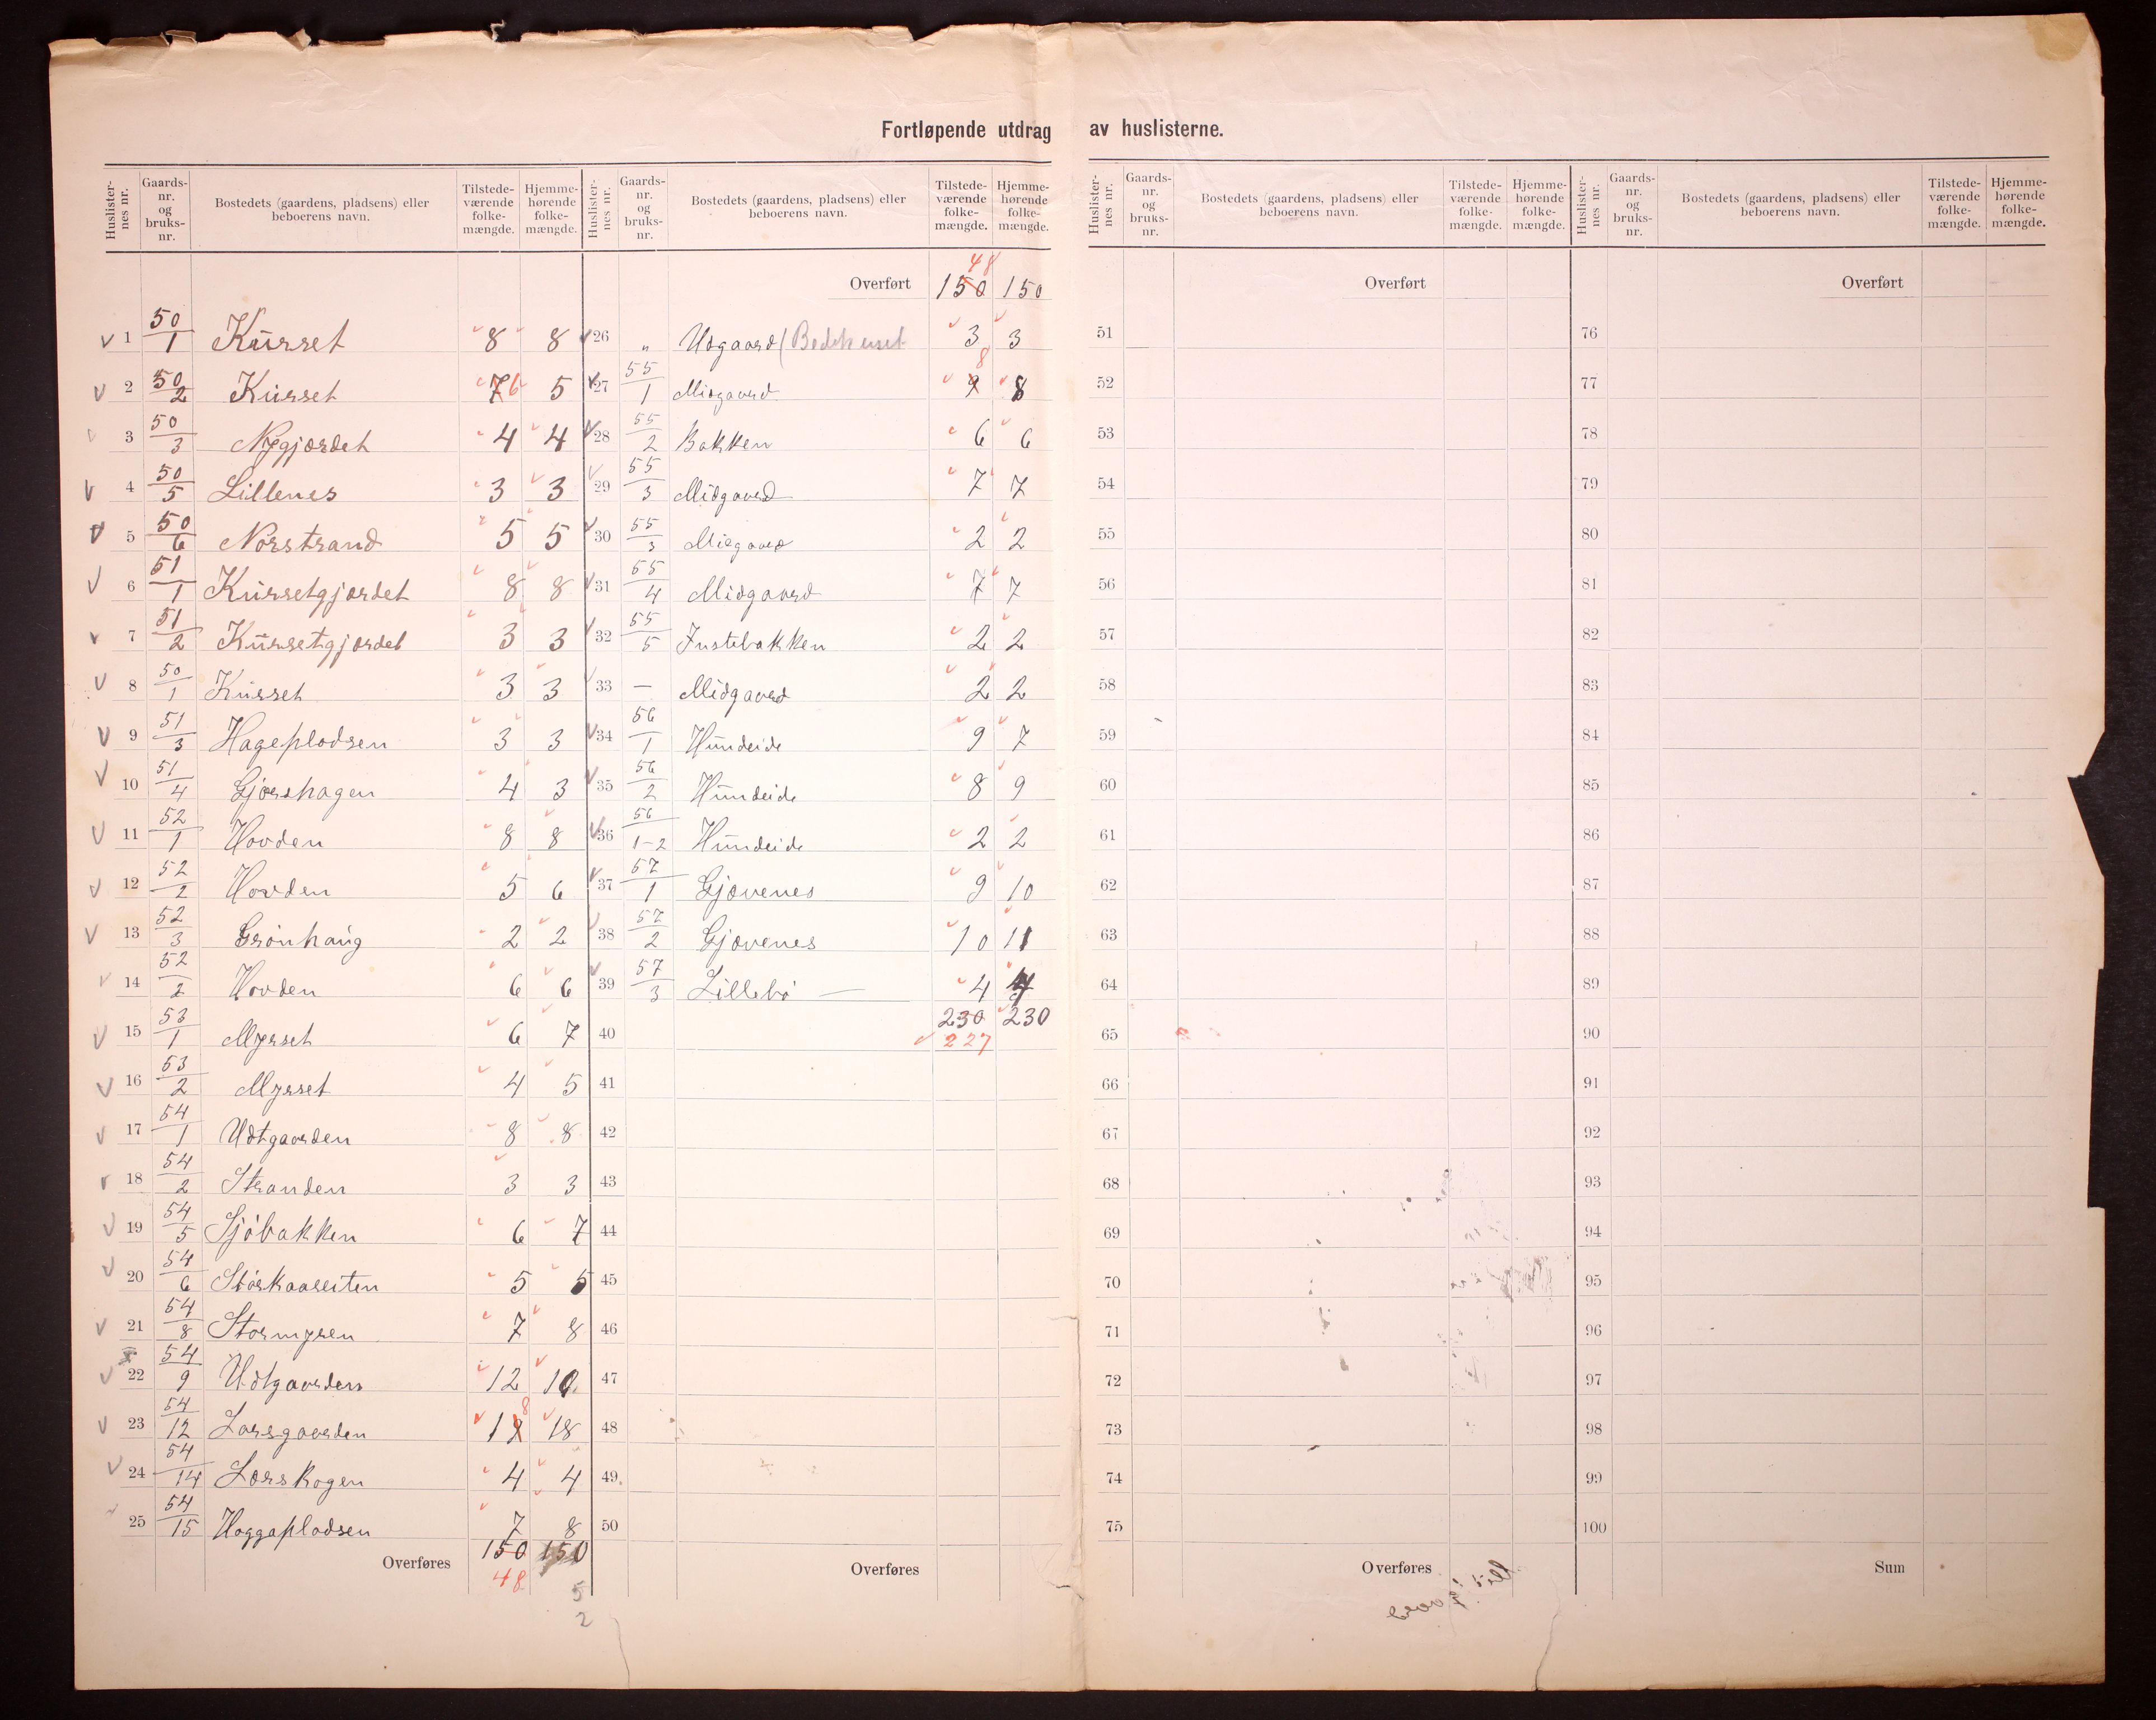 Fortløpende utdrag av huslisterne.
Huslisternes nr. Gaards-nr. og bruks-nr. Bostedets (gaardens, pladsens) eller beboerens navn. Tilstede-værende folke-mængde. Hjemme-hørende folke-mængde.
1 50/1 Kürset 8 8
2 50/2 Kürset 7 6 5
3 50/3 Nygjordet 4 4
4 50/5 Lillenes 3 3
5 50/6 Norstrand 5 5
6 51/1 Kürsetgjordet 8 8
7 51/2 Kürsetgjordet 3 3
8 50/1 Kürset 3 3
9 51/3 Hageplodsen 3 3
10 51/4 Gjørshagen 4 3
11 52/1 Hovden 8 8
12 52/2 Hovden 5 6
13 52/3 Grönhaug 2 2
14 52/2 Hovden 6 6
15 53/1 Myrset 6 7
16 53/2 Myrset 4 5
17 54/1 Udtgaarden 8 8
18 54/2 Stranden 3 3
19 54/5 Sjöbakken 6 7
20 54/6 5 5
21 54/8 Stormyren 7 8
22 54/9 Udtgaarden 12 10
23 54/12 Larsgaarden 19 8 18
24 54/14 Larskogen 4 4
25 54/15 Haggaplodsen 7 8
Overføres 150 150
48
5
2
Huslisternes nr. Gaards-nr. og bruks-nr. Bostedets (gaardens, pladsens) eller beboerens navn. Tilstede-værende folke-mængde. Hjemme-hørende folke-mængde.
48
Overført 150 150
26 " Udgaard (Bedehuset 3 3
27 55/1 Midgaard 9 8 8
28 55/2 Bakken 6 6
29 55/3 Midgaard 7 7
30 55/3 Midgaard 2 2
31 55/4 Midgaard 7 7
32 55/5 Justebakken 2 2
33 — Midgaard 2 2
34 56/1 Hündeide 9 7
35 56/2 Hündeide 8 9
36 56/1-2 Hündeide 2 2
37 57/1 Gjøvenes 9 10
38 57/2 Gjøvenes 10 11
39 57/3 Lillebö — 4 4
230 230
227
40
41
42
43
44
45
46
47
48
49
50
Overføres
Huslisternes nr. Gaards-nr. og bruks-nr. Bostedets (gaardens, pladsens) eller beboerens navn. Tilstede-værende folke-mængde. Hjemme-hørende folke-mængde.
Overført
51
52
53
54
55
56
57
58
59
60
61
62
63
64
65
66
67
68
69
70
71
72
73
74
75
Overføres
Huslisternes nr. Gaards-nr. og bruks-nr. Bostedets (gaardens, pladsens) eller beboerens navn. Tilstede-værende folke-mængde. Hjemme-hørende folke-mængde.
Overført
76
77
78
79
80
81
82
83
84
85
86
87
88
89
90
91
92
93
94
95
96
97
98
99
100
Sum